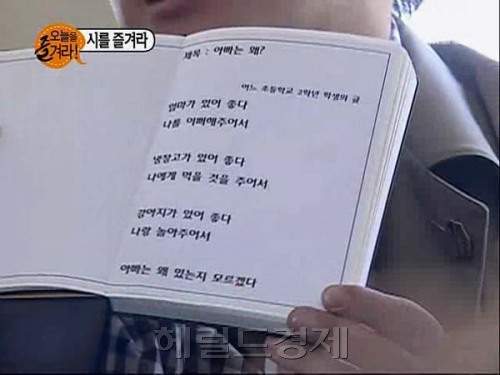 오늘을
즐겨라!
시를 즐겨라
제목 : 아빠는 왜?
어느 초등학교 2학년 학생의 글
엄마가 있어 좋다
나를 이뻐해주어서
냉장고가 있어 좋다
나에게 먹을 것을 주어서
강아지가 있어 좋다
나랑 놀아주어서
아빠는 왜 있는지 모르겠다
헤럴드경제